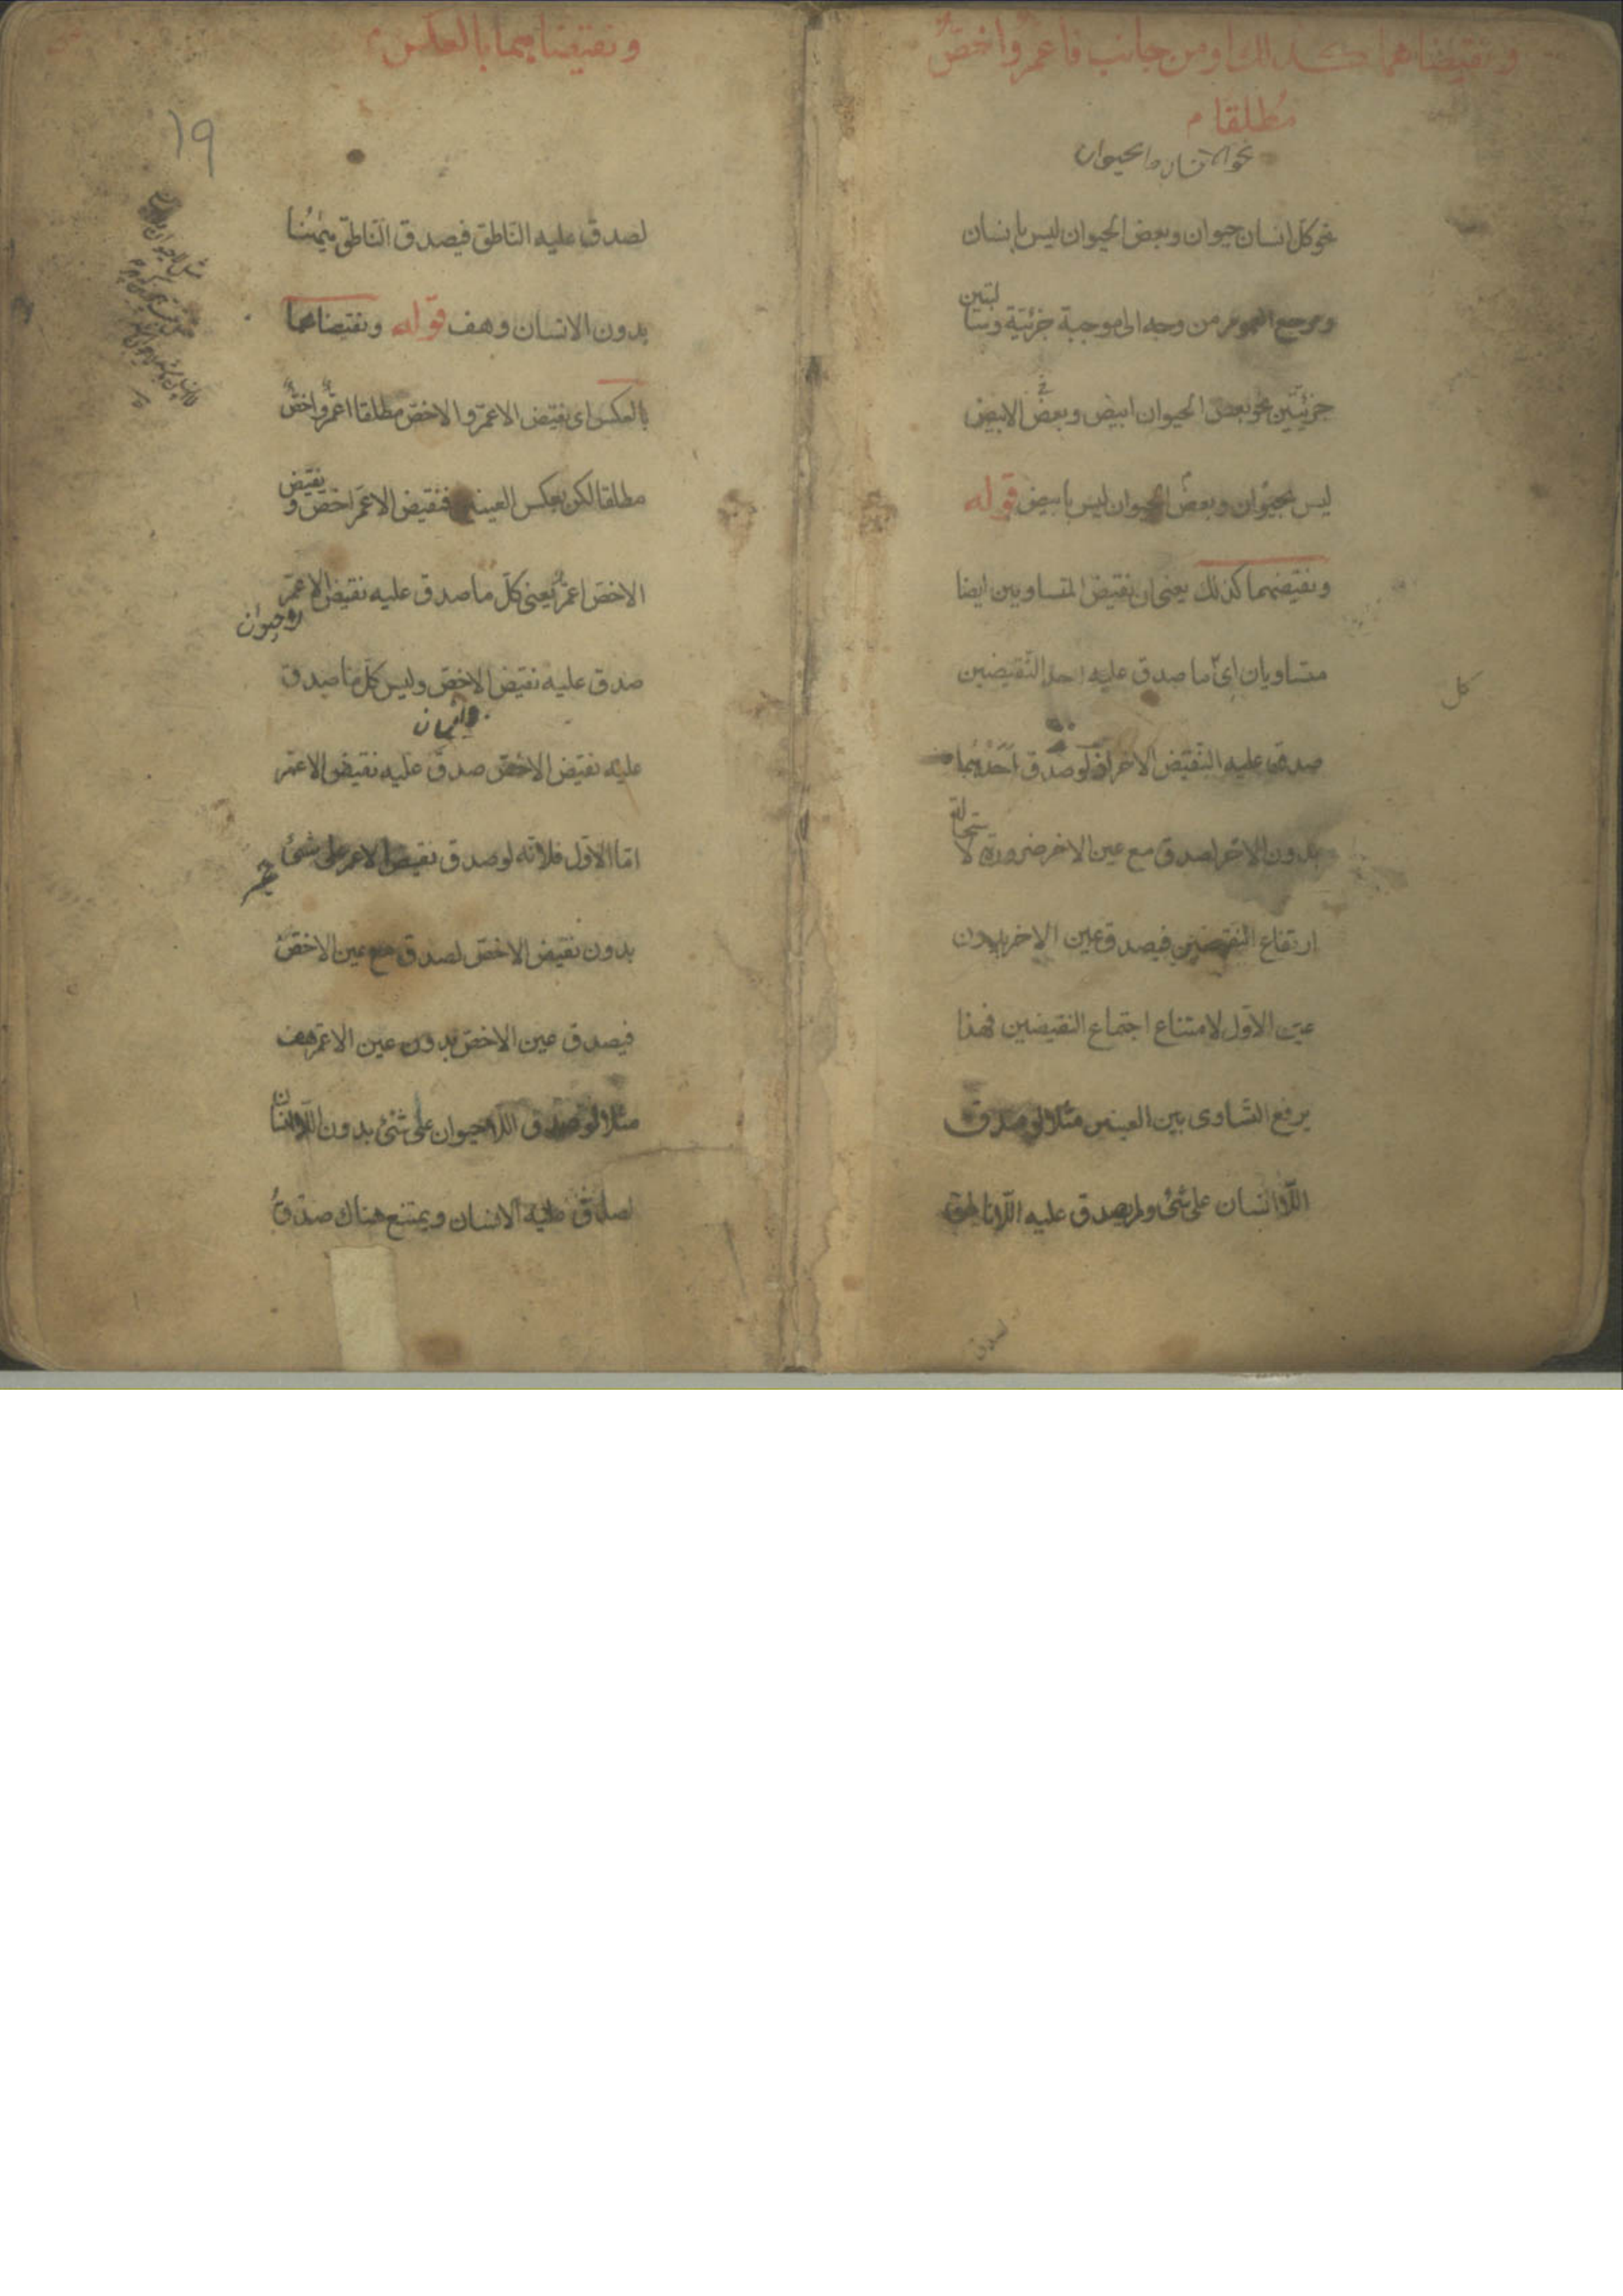 ونقيضاهما كذلك او من جانب فاعم واخص
مطلقا م
نحو الانسان والحيوان
نحو كل انسان حيوان وبعض الحيوان ليس بانسان
ومرجع العموم من وجه الى موجبة جزئية وسالبتين
جزئيتين نحو بعض الحيوان ابيض وبعض الابيض
ليس بحيوان وبعض الحيوان ليس بابيض قوله
ونقيضهما كذلك يعنى ان نقيض المتساويين ايضا
متساويان اى ما صدق عليه احد النقيضين
كل
صدق عليه النقيض الاخر اذ لو صدق احدهما
بدون الاخر لصدق مع عين الاخر ضرورة لاستحالة
ارتفاع النقيضين فيصدق عين الاخر بدون
عين الاول لامتناع اجتماع النقيضين فهذا
يرفع التساوى بين العينين مثلا لو صدق
اللاانسان على شئ ولم يصدق عليه اللاناطق
لصدق
ونقيضاهما بالعكس م
١٩
لصدق عليه الناطق فيصدق الناطق هيهنا
بدون الانسان وهف قوله ونقيضاهما
بالعكس اى نقيض الاعم والاخص مطلقا اعم واخص
مطلقا لكن بعكس العينين فنقيض الاعم اخص ونقيض
الاخص اعم يعنى كل ما صدق عليه نقيض الاعم
صدق عليه نقيض الاخص وليس كل ما صدق
عليه نقيض الاخص صدق عليه نقيض الاعم
اما الاول فلانه لو صدق نقيض الاعم على شئ
بدون نقيض الاخص لصدق مع عين الاخص
فيصدق عين الاخص بدون عين الاعم هف
مثلا لو صدق اللاحيوان على شئ بدون اللاانسان
لصدق عليه الانسان ويمتنع هناك صدق